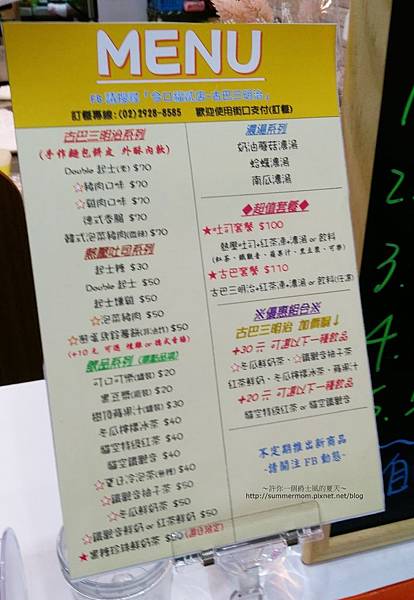 MENU
FB 請搜尋「令口福貳店-古巴三明治」
訂餐專線:(02)2928-8585 歡迎使用街口支付(訂餐)
古巴三明治系列
(手作麵包餅皮 外酥內軟)
Double 起士(素) $70
☆豬肉口味 $70
☆雞肉口味 $70
德式香腸 $70
韓式泡菜豬肉(微辣) $70
熱壓吐司系列
起士辣 $30
Double 起士 $50
起士燻雞 $50
☆泡菜豬肉 $50
$50
飲品系列
可口可樂(罐裝) $20
黑豆漿(罐裝) $20
樹頂蘋果汁(罐裝) $30
冬瓜檸檬冰茶 $40
貓空特級紅茶 $40
貓空鐵觀音 $40
☆夏日冷泡茶(無糖) $40
☆鐵觀音柚子茶 $50
☆冬瓜鮮奶茶 $50
☆鐵觀音鮮奶 or 紅茶鮮奶 $50
★黑糖珍珠鮮奶茶 $50
濃湯系列
奶油蘑菇濃湯
蛤蠣濃湯
南瓜濃湯
◆超值套餐◆
★吐司套餐 $100
熱壓吐司+紅茶凍+濃湯 or 飲料
(紅茶、鐵觀音、蘋果汁、黑豆漿、可樂)
★古巴套餐 $110
古巴三明治+紅茶凍+濃湯 or 飲料(任選)
※優惠組合※
古巴三明治 加價購↓
+30 元 可選以下一種飲品
☆冬瓜鮮奶茶、☆鐵觀音柚子茶
紅茶鮮奶、冬瓜檸檬冰茶、蘋果汁
+20 元 可選以下一種飲品
貓空特級紅茶 or 貓空鐵觀音
不定期推出新商品
-請關注 FB 動態-
～許你一個爵士風的夏天～
http://summermom.pixnet.net/blog
2.
3.
4.